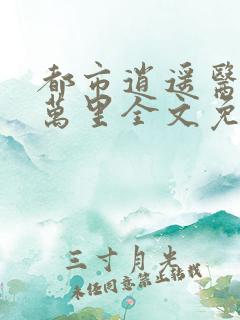 都市逍遥醫
萬里全文免
三寸月光
未經同意禁止轉載